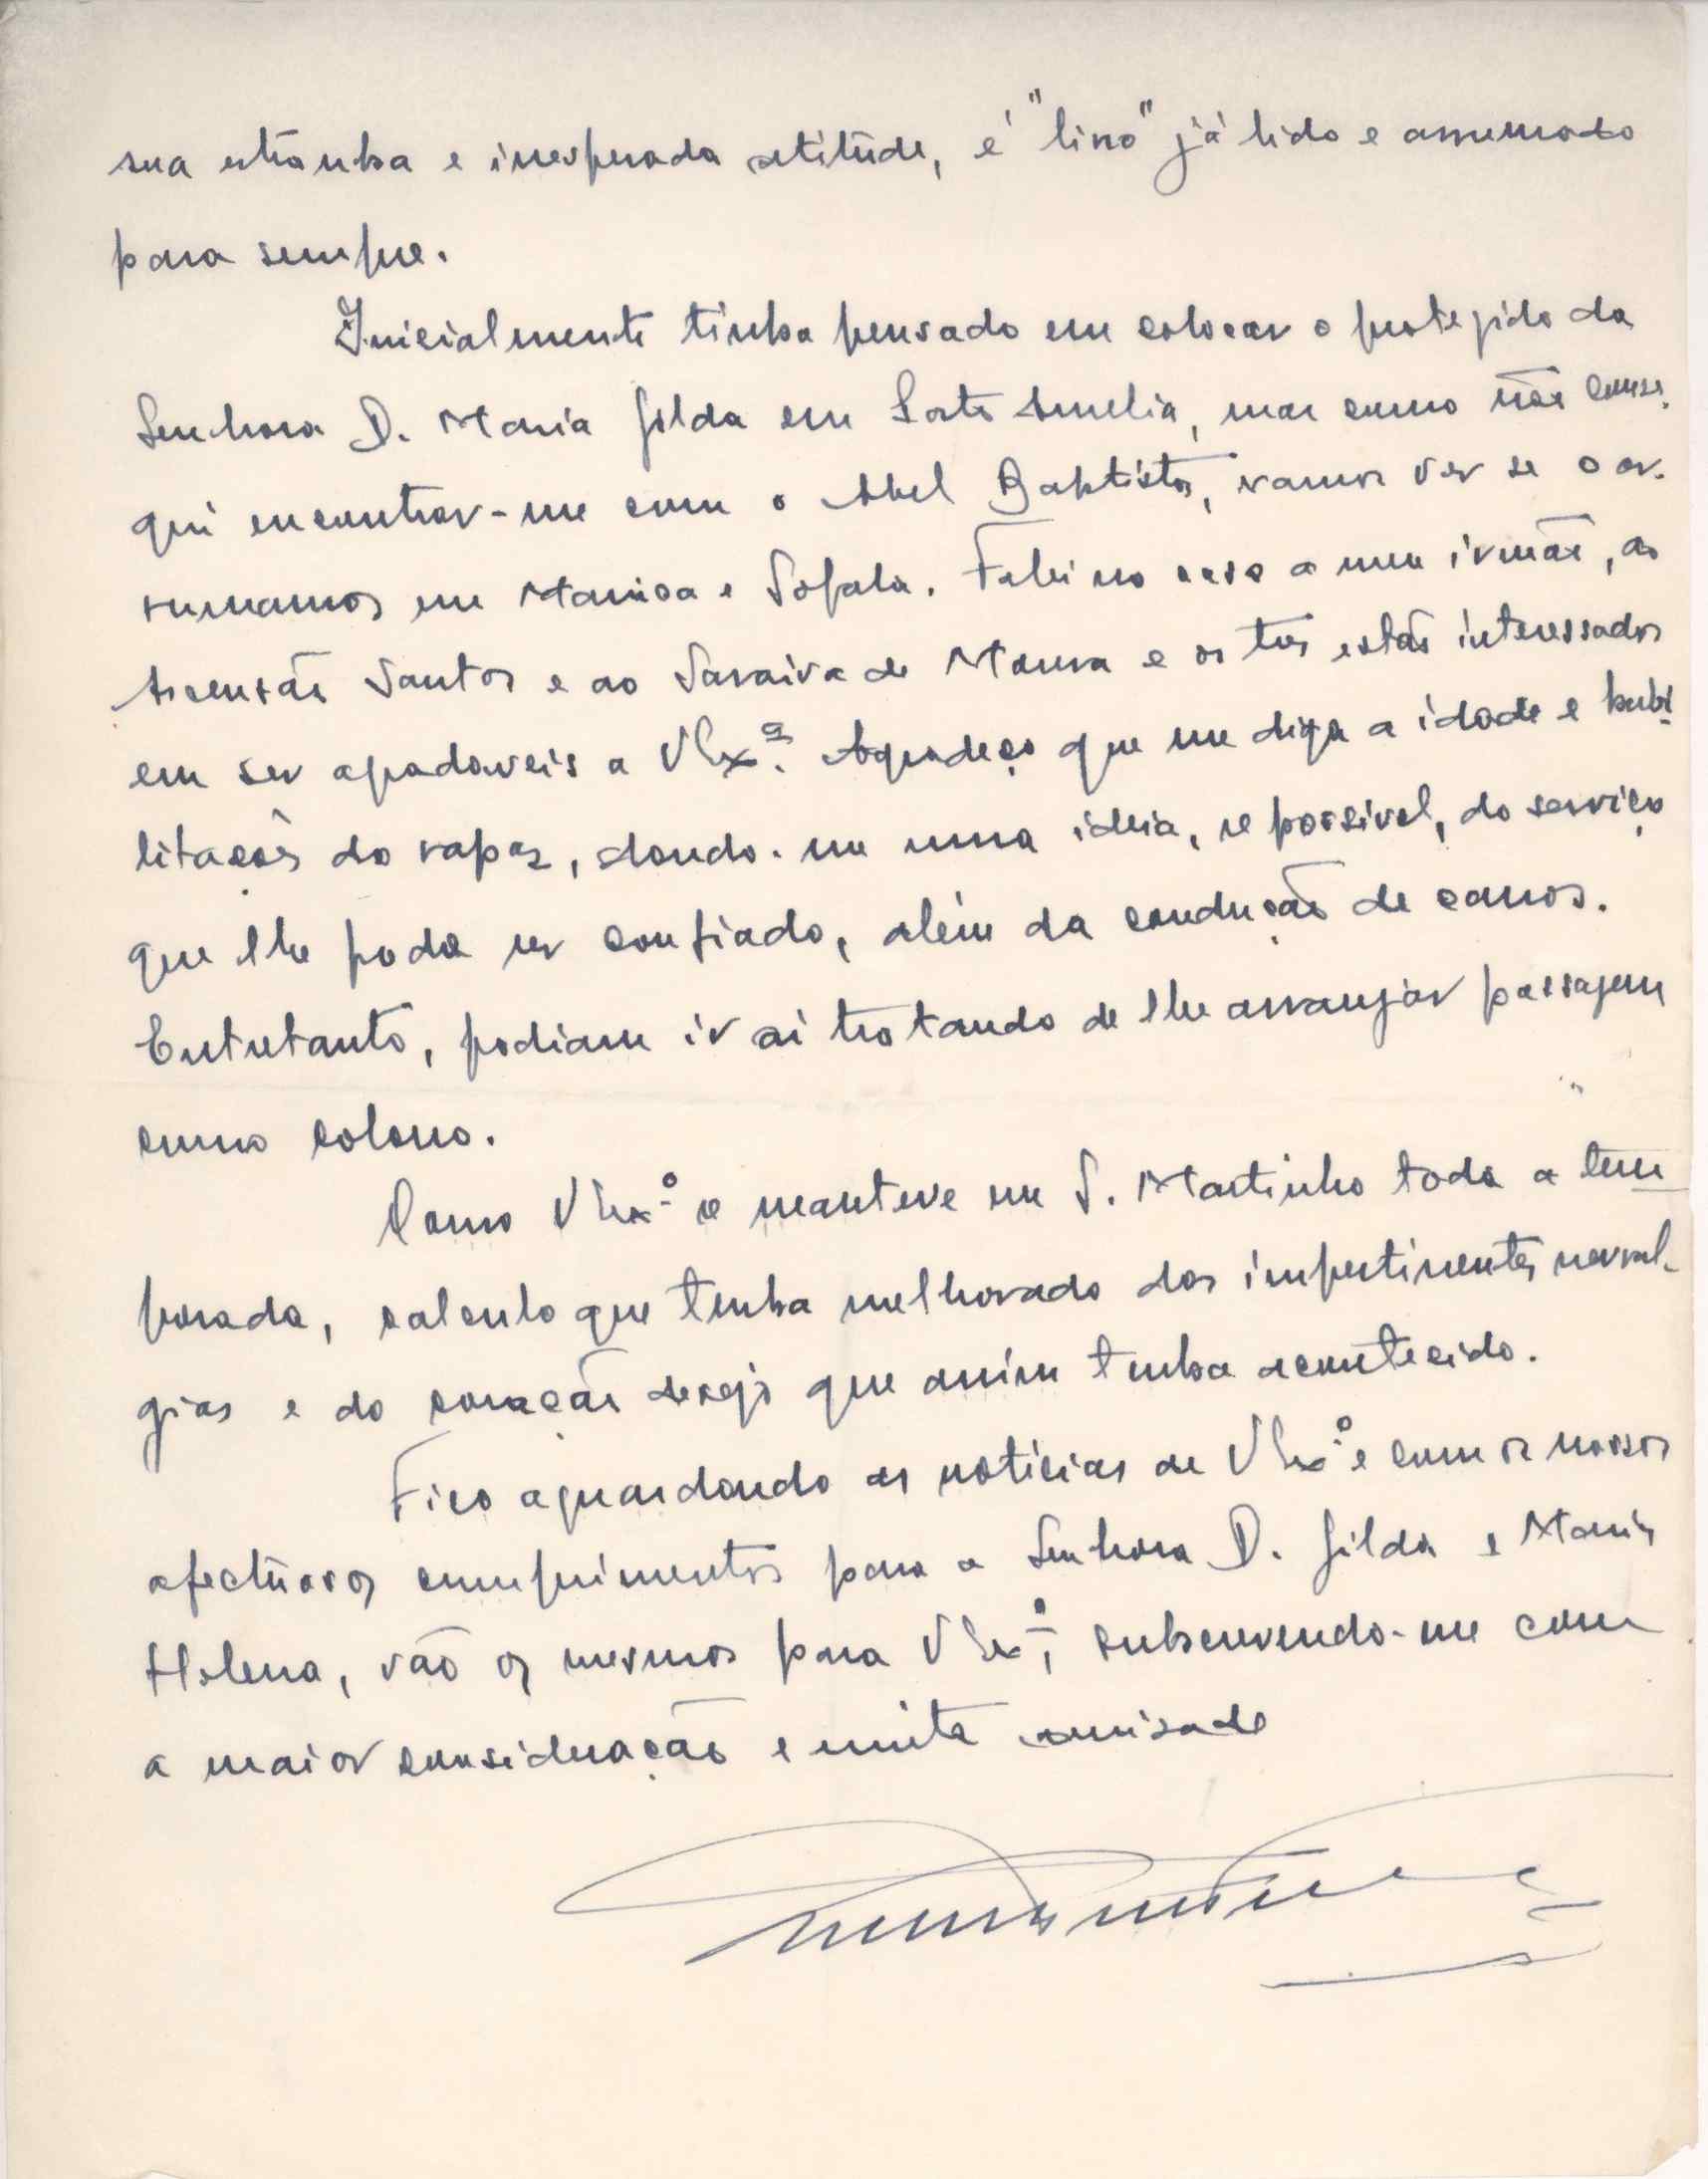 sua estranha e inesperada atitude, é "livro" já lido e arrumado
para sempre.
Inicialmente tinha pensado em colocar o protegido da
Senhora D. Maria Gilda em Porto Amelia, mas como não conse-
gui encontrar-me com o Abel Baptista, vamos ver se o ar-
rumamos em Manica e Sofala. Falei no caso a meu irmão, ao
Ascensão Santos e ao Saraiva de Moura e os três estão interessados
em ser agradaveis a V Ex.ª. Agradeço que me diga a idade e habi-
litações do rapaz, dando-me uma ideia, se possivel, do serviço
que lhe pode ser confiado, além da condução de carros.
Entretanto, podiam ir ai tratando de lhe arranjar passagem
como colono.
Como V Ex.ª se manteve em S. Martinho toda a tem
porada, calculo que tenha melhorado das impertinentes nevral-
gias e do coração desejo que assim tenha acontecido.
Fico aguardando as noticias de V Ex.ª e com os nossos
afectuosos cumprimentos para a Senhora D. Gilda e Maria
Helena, vão os mesmos para V Ex.ª, subscrevendo-me com
a maior consideração e muita amisade